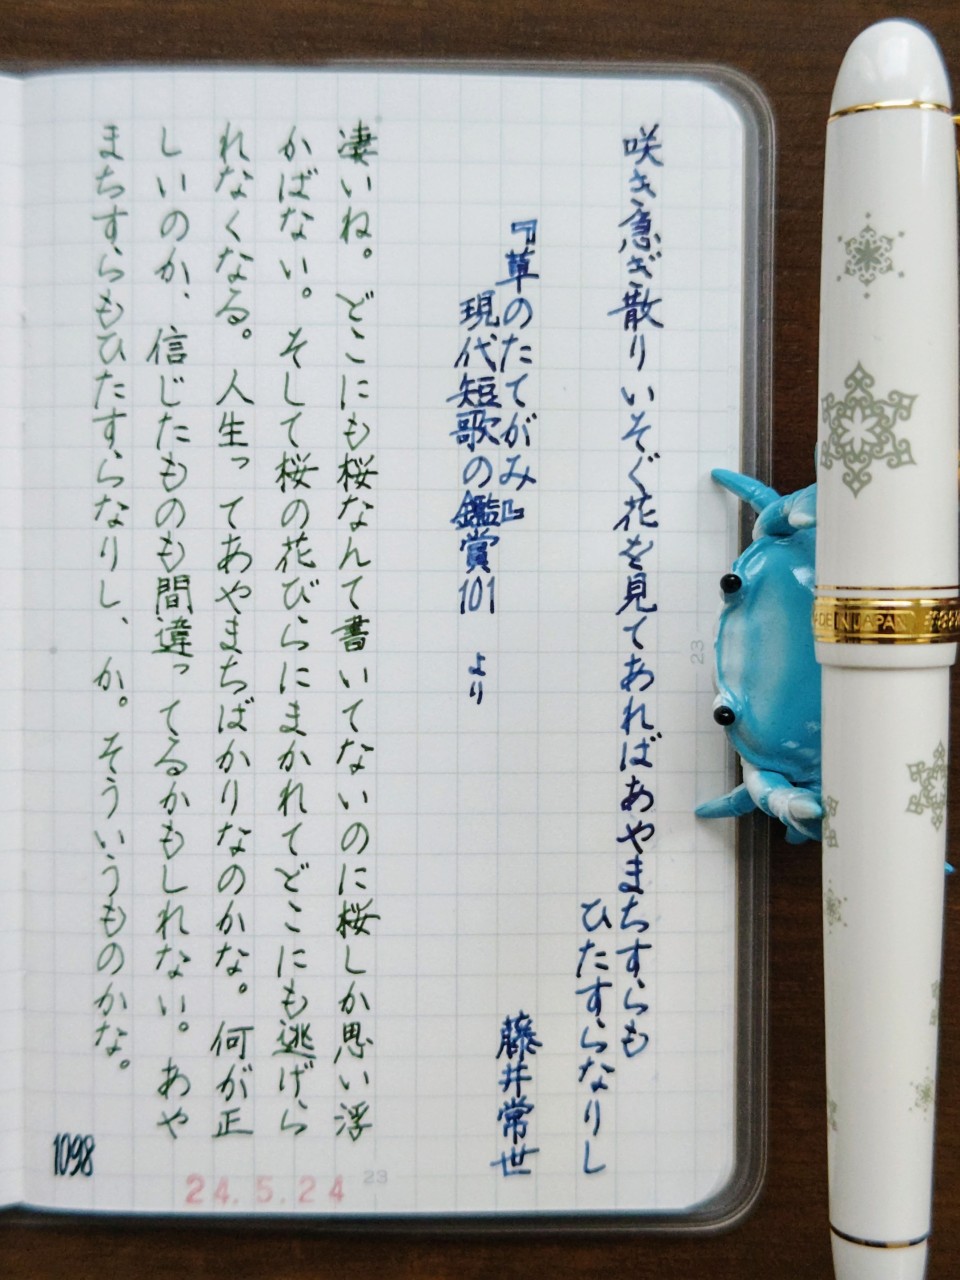 咲き急ぎ散りいそぐ花を見てあればあやまちすらも
ひたすらなりし
藤井常世
『草のたてがみ』
現代短歌の鑑賞101 より
凄いね。どこにも桜なんて書いてないのに桜しか思い浮
かばない。そして桜の花びらにまかれてどこにも逃げら
れなくなる。人生ってあやまちばかりなのかな。何が正
しいのか、信じたものも間違ってるかもしれない。あや
まちすらもひたすらなりし、か。そういうものかな。
1098
24.5.24
23
23
MADE IN JAPAN